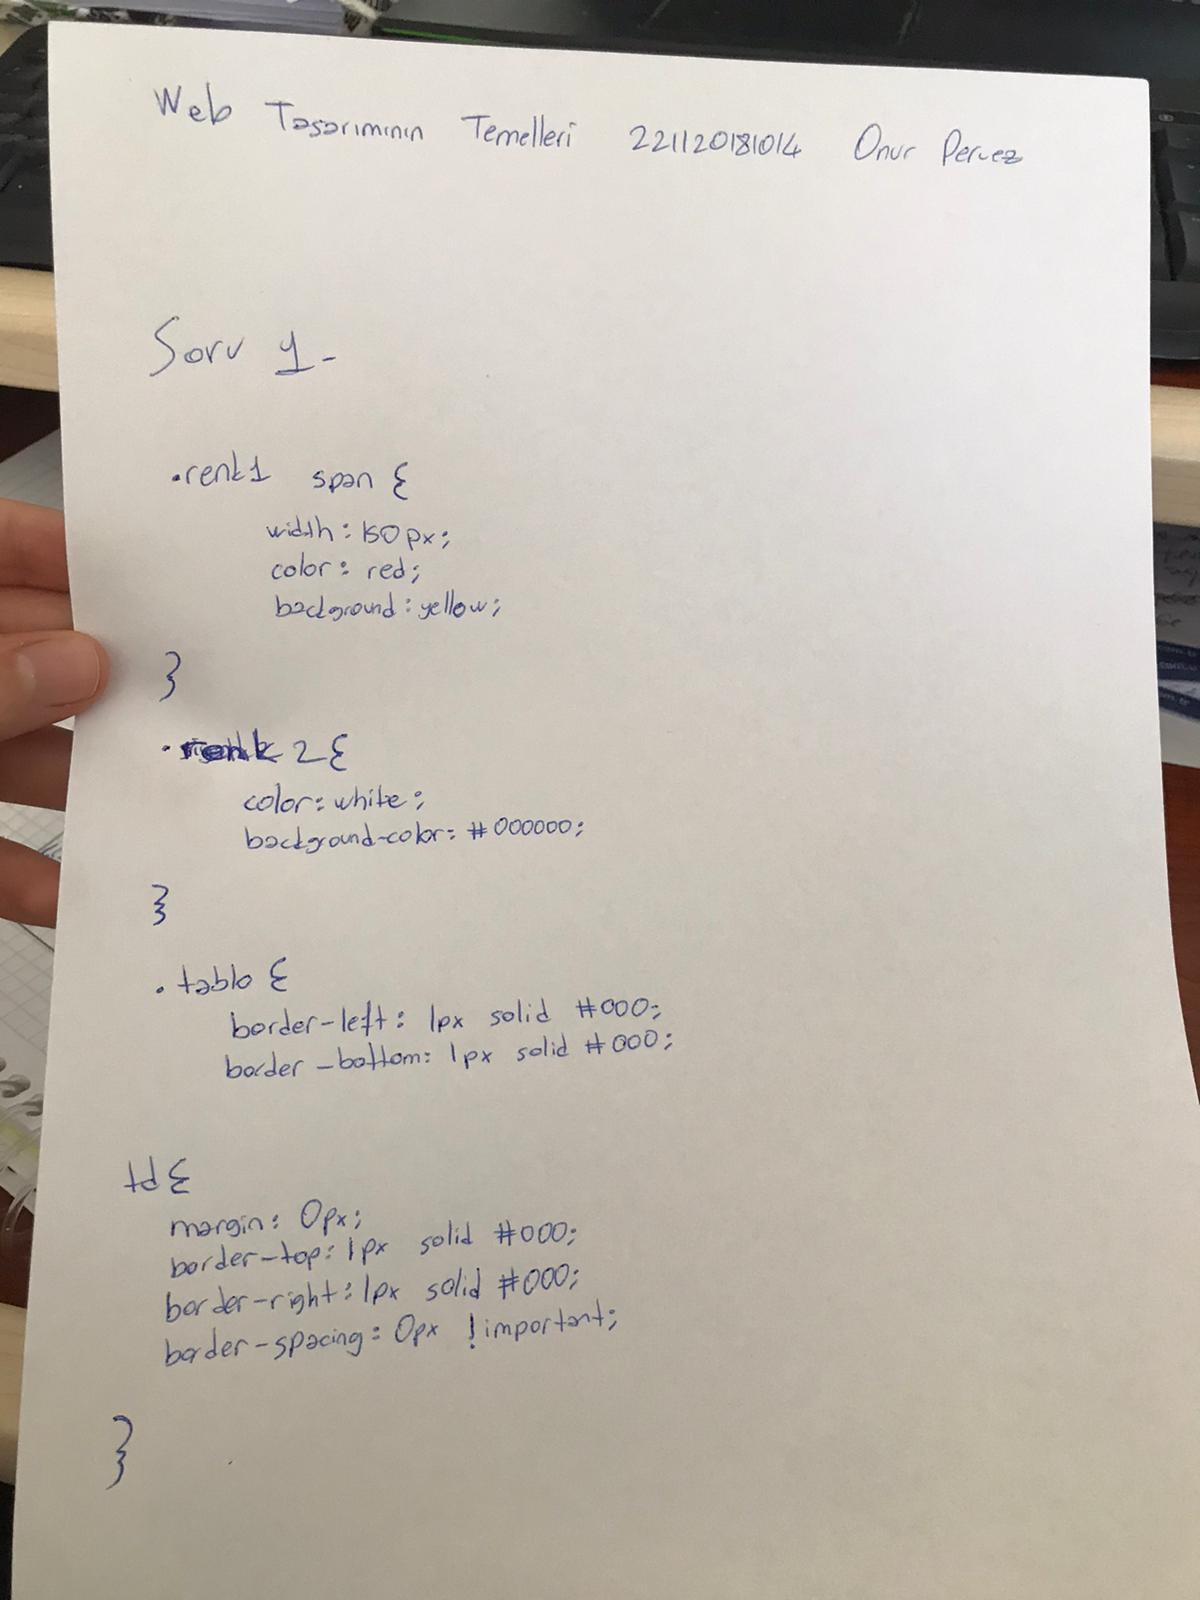 Web Tasarımının Temelleri 221120181014 Onur Pervez
Soru 1-
.renk1 span {
width: 150px;
color: red;
background: yellow;
}
.renk 2 {
color: white;
background-color: #000000;
}
.tablo {
border-left: 1px solid #000;
border-bottom: 1px solid #000;
td {
margin: 0px;
border-top: 1px solid #000;
border-right: 1px solid #000;
border-spacing: 0px !important;
}